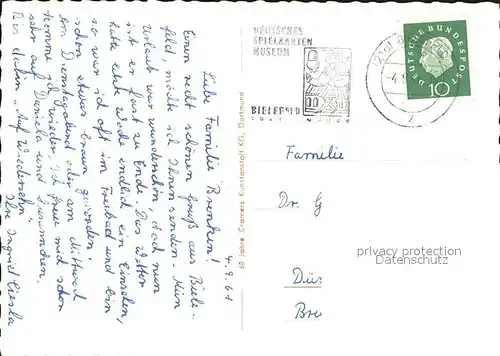 4.9.61
Liebe Familie
Einen recht schönen Gruß aus Biele-
feld, möchte ich Ihnen senden. Mein
Urlaub war wunderschön. Doch nun
ist er fast zu Ende. Das Wetter
hatte letzte Woche endlich ein Einsehen,
so war ich oft im Freibad und bin
schon etwas braun geworden!
Am Dienstagabend oder am Mittwoch
komme ich wieder. Ich freue mich schon
sehr auf Daniela und
Bis dahin "Auf Wiedersehn"
Ihre Ingrid
60 Jahre Cramers Kunstanstalt KG, Dortmund
DEUTSCHES
SPIELKARTEN
MUSEUM
BIELEFELD
DEUTSCHE BUNDESPOST
10
Familie
Dr. G
Düs
Bre
privacy protection
Datenschutz